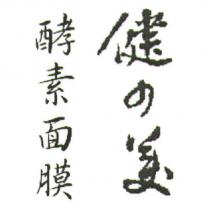 健の美
酵素面膜